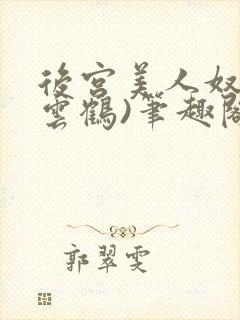 後宮美人奴
雲鶴)筆趣閣
郭翠雯